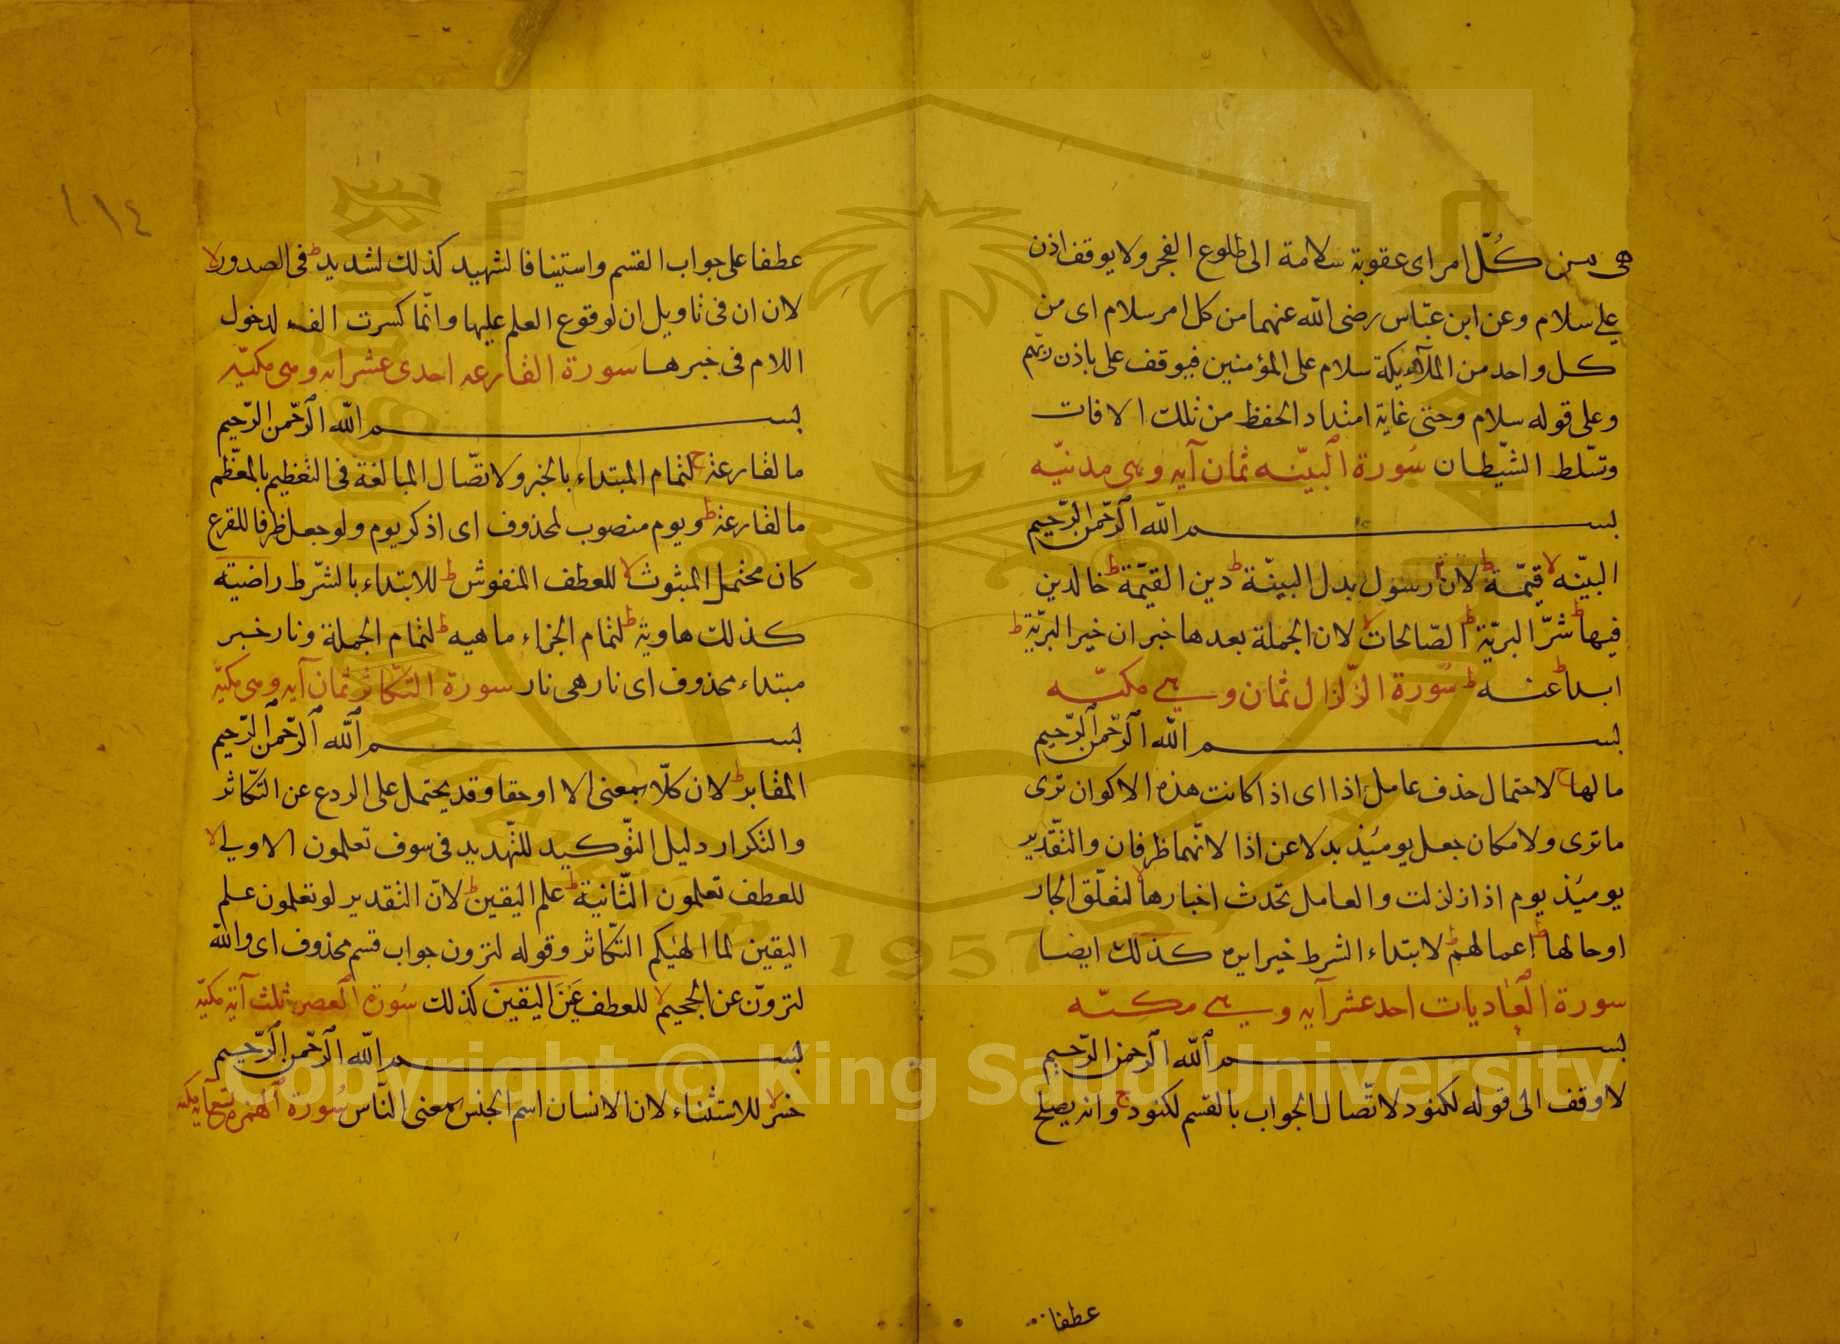 هى من كُلّ امر اى عقوبة سلامة الى طلوع الفجر ولا يوقف اذن
على سلام وعن ابن عبّاس رضى الله عنهما من كل امر سلام اى من
كل واحد من الملآئكة سلام على المؤمنين فيوقف على باذن ربّهم
وعلى قوله سلام وحتى غاية امتداد الحفظ من تلك الافات
وتسّلط الشّيطان سُورة البيّنه ثمان آيه وهى مدنيّه
بسم الله الرّحمن الرّحيم
البيّنه لا قيّمة ط لان رسول بدل البينّة ط دين القيّمة ط خالدين
فيها ط شرّ البريّة ط الصّالحات لا لان الجملة بعدها خبر ان خير البريّة ط
ابدا ط عنه ط سُورة الزّلزال ثمان وهى مكيّه
بسم الله الرّحمن الرّحيم
مالها ج لاحتمال حذف عامل اذا اى اذا كانت هذه الاكوان ترى
ما ترى ولامكان جعل يومئذ بدلا عن اذا لانّهما ظرفان والتّقدير
يومئذ يوم اذا زلزلت والعامل تحّدث اخبارها لا لتعلّق الجار
اوحالها ط اعمالهم ط لابتداء الشرط خيرا يره كذلك ايضا
سورة العاديات احد عشر آيه وهى مكيّه
بسم الله الرّحمن الرّحيم
لا وقف الى قوله لكنود لاتّصال الجواب بالقسم لكنود ج وانه يصلح
عطفا
١١٤
عطفا على جواب القسم واستينافا لشهيد كذلك لشديد ط فى الصدور لا
لان ان فى تاويل ان لوقوع العلم عليها وانّما كسرت الفه لدخول
اللام فى خبرها سورة القارعه احدى عشر ايه وهى مكيّه
بسم الله الرّحمن الرّحيم
مالقارعة ج لتمام المبتداء بالخبر ولاتصّال المبالغة فى التعظيم بالمعّظم
مالقارعة ط ويوم منصوب لمحذوف اى اذكر يوم ولو جعل ظرفا للقرع
كان محتمل المبثوث لا للعطف المنفوش ط للابتداء بالشّرط راضيّه
كذلك هاوية ط لتمام الجزاء ماهيه ط لتمام الجملة ونار خبر
مبتداء محذوف اى نار هى نار سورة التّكاثر ثمان آيه وهى مكيّه
بسم الله الرّحمن الرّحيم
المقابر ط لان كلّا بمعنى الا او حقا وقد يحتمل على الردع عن التكّاثر
والتكرار دليل التّوكيد للتّهديد فى سوف تعلمون الاولى لا
للعطف تعلمون الثّانية ط علم اليقين ط لانّ التقدير لو تعلمون علم
اليقين لما الهيكم التّكاثر وقوله لترون جواب قسم محذوف اى والله
لترونّ عن الجحيم لا للعطف عَيْنَ اليقين كذلك سُورة العصر ثلث آية مكيّه
بسم الله الرّحمن الرّحيم
خسر لا للاستثناء لان الانسان اسم الجنس بمعنى النّاس سُورة الهمزه تسع آيه مكيه
Copyright © King Saud University
1957